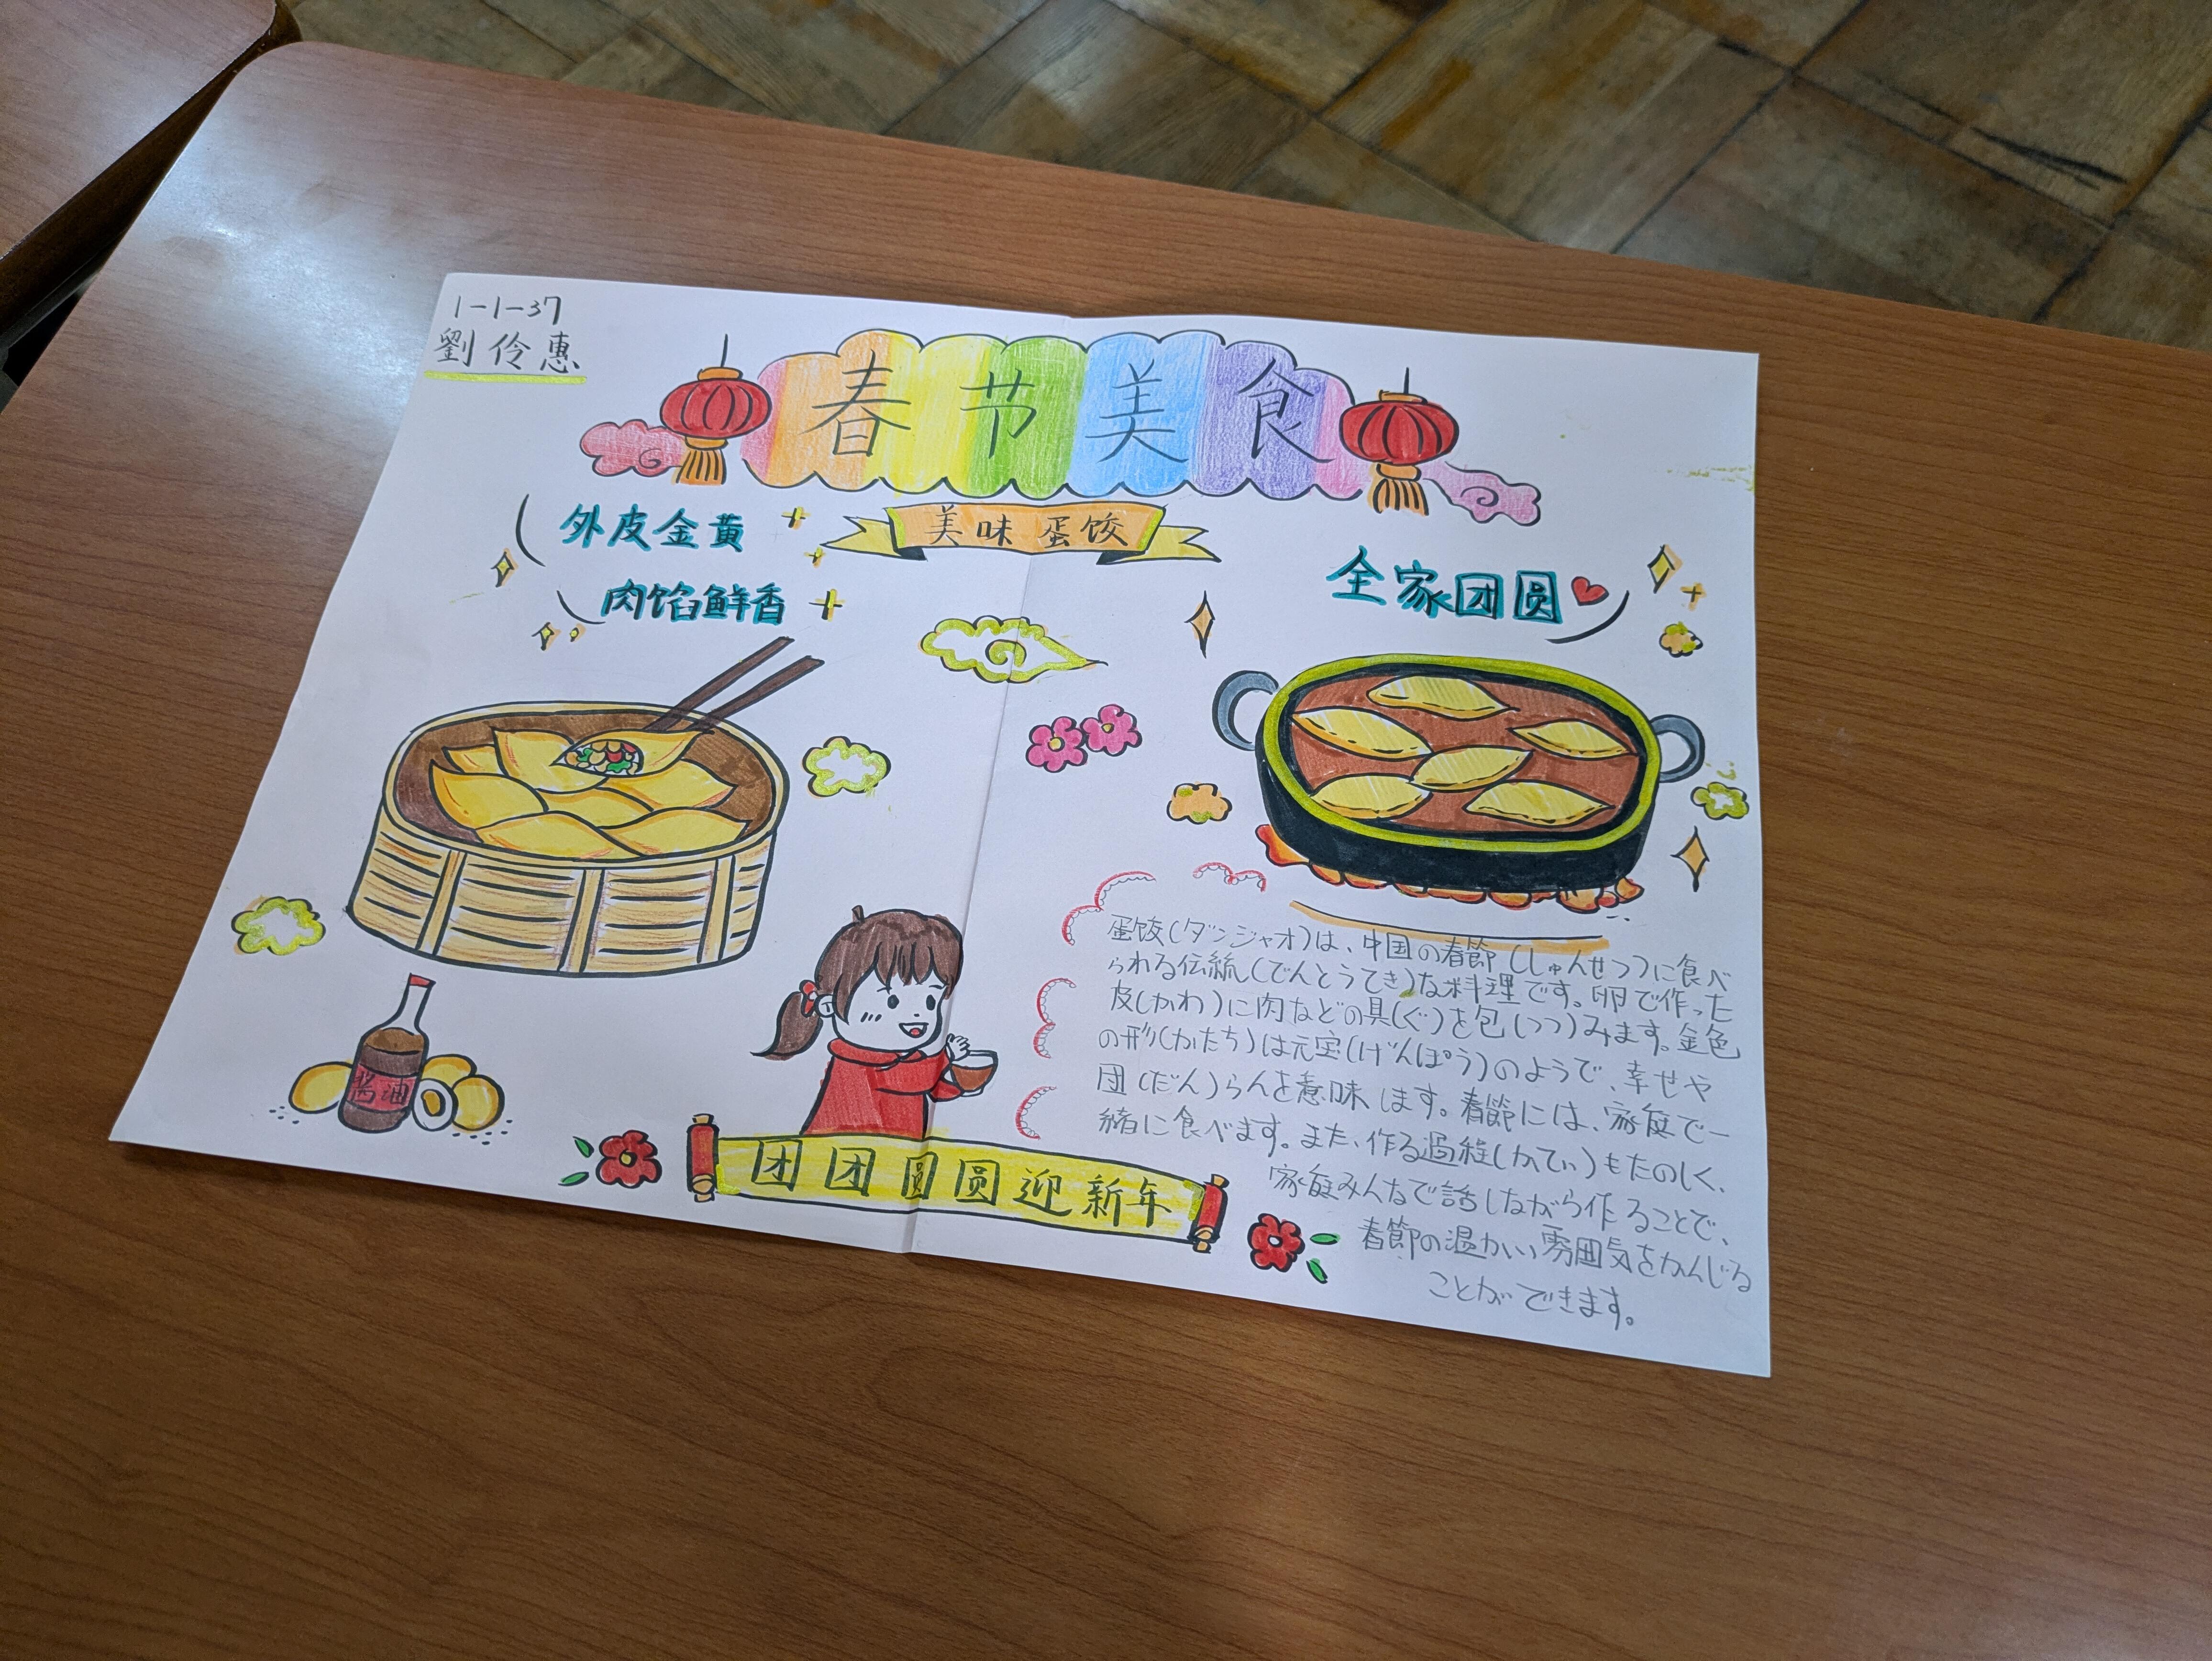 1-1-37
劉伶惠
春节美食
美味蛋饺
外皮金黄
肉馅鲜香
全家团圆
酱油
蛋饺(ダンジャオ)は、中国の春節(しゅんせつ)に食べ
られる伝統(でんとうてき)な料理です。卵で作った
皮(かわ)に肉などの具(ぐ)を包(つつ)みます。金色
の形(かたち)は元宝(げんぽう)のようで、幸せや
団(だん)らんを意味します。春節には、家庭で一
緒に食べます。また、作る過程(かてい)もたのしく、
家庭みんなで話しながら作ることで、
春節の温かい雰囲気をかんじる
ことができます。
团团圆圆迎新年